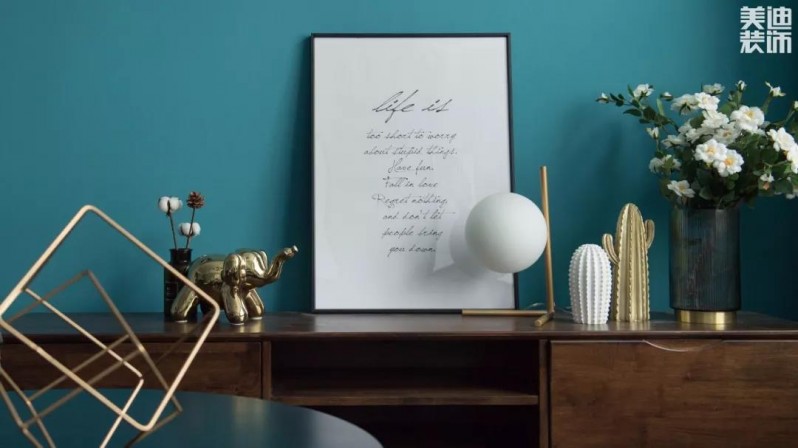 美迪
装饰
life is
too short to worry
about stupid things.
Have fun.
Fall in love
Regret nothing
and don't let
people bring
you down.